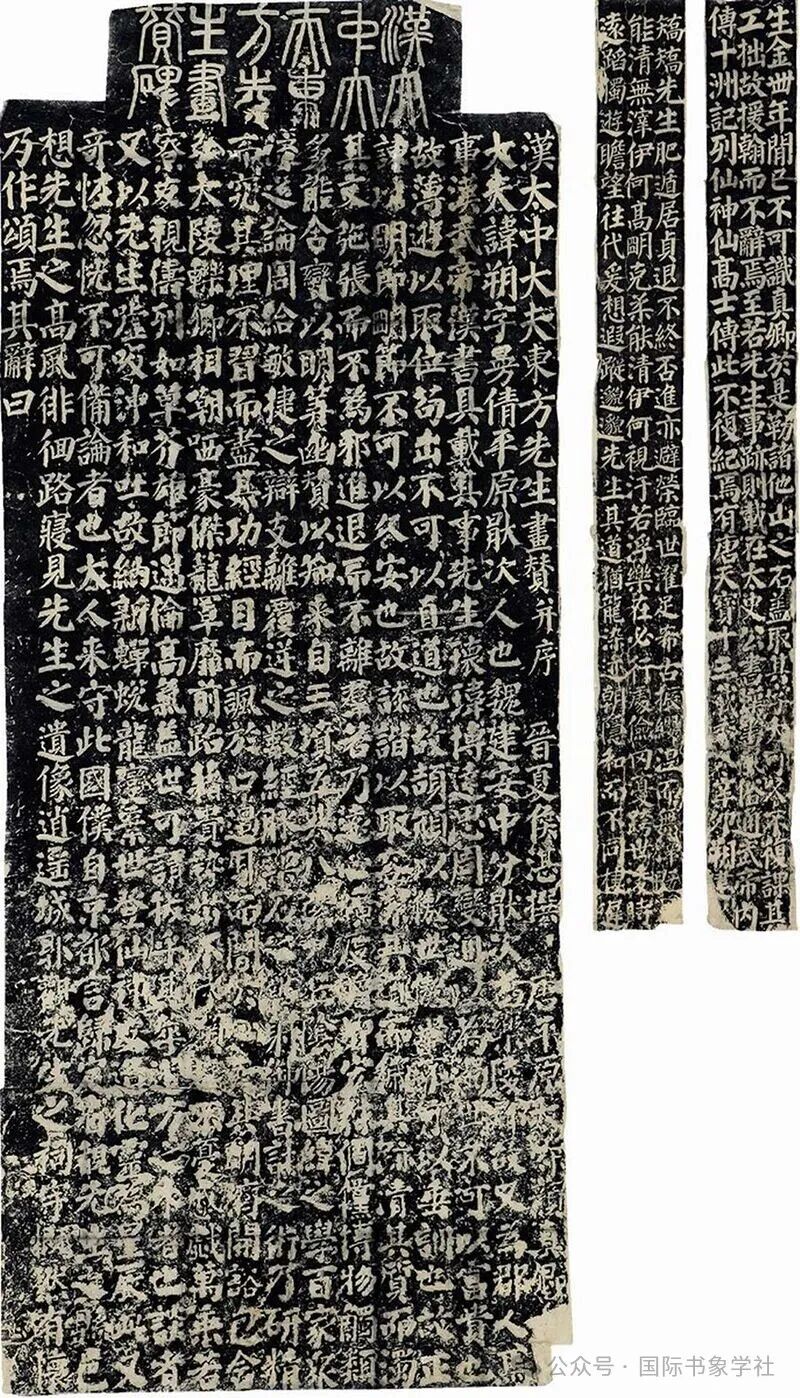 漢太
中大
夫東
方先
生畫
贊碑
漢太中大夫東方先生畫贊并序 晉夏侯湛撰
大夫諱朔字曼倩平原厭次人也魏建安中分厭次故又為郡人
事漢武帝漢書具載其事先生瓌瑋博達思周變通為不可以富貴也
故薄遊以取位苟出不可以直道也故頡頏以傲世可以垂訓也故正
諫以明節明節不可以久安也故詼諧以取容而穢其跡清其質而濁
其文弛張而不為邪進退而不離群若乃遠度倜儻博物觸類
多能合變以明筭幽贊以知來自三墳五典八陰陽圖緯之學百家眾
流之論周給敏捷之辯支離覆逆之數經脈射御書計之術乃研精
而究其理不習而盡其功經目而諷於口過耳而闇其明濟開豁包含
弘大陵轢卿相嘲哂豪傑籠罩靡前跆籍貴勢出不憂戚戲萬乘若
寮友視儔列如草芥雄節邁倫高氣蓋世可謂拔乎其萃方之外者也談者
又以先生噓吸沖和吐故納新蟬蛻龍變棄世登仙化靈為星辰此又
奇怪忽恍不可備論者也大人來守此國僕自京都言歸省覩先生之縣邑
想先生之高風徘徊路寢見先生之遺像逍遙城郭觀先生之祠宇慨然有懷
乃作頌焉其辭曰
生金卅年間已不可識真卿於是勒諸他山之石蓋取其不復課其
工拙故援翰而不辭焉至若先生事跡則載在太史公書漢書風俗通武帝內
傳十洲記列仙神仙高士傳此不復紀焉有唐天寶十三
矯矯先生肥遯居貞退不終否進亦避榮臨世濯足希古振纓涅而無
能清無滓伊何高明克柔能清伊何視汙若浮樂在必行處儉罔憂跨世
遠蹈獨遊瞻望往代爰想遐蹤邈邈先生其道猶龍染跡朝隱和而不同棲遲
公众号·国际书象学社